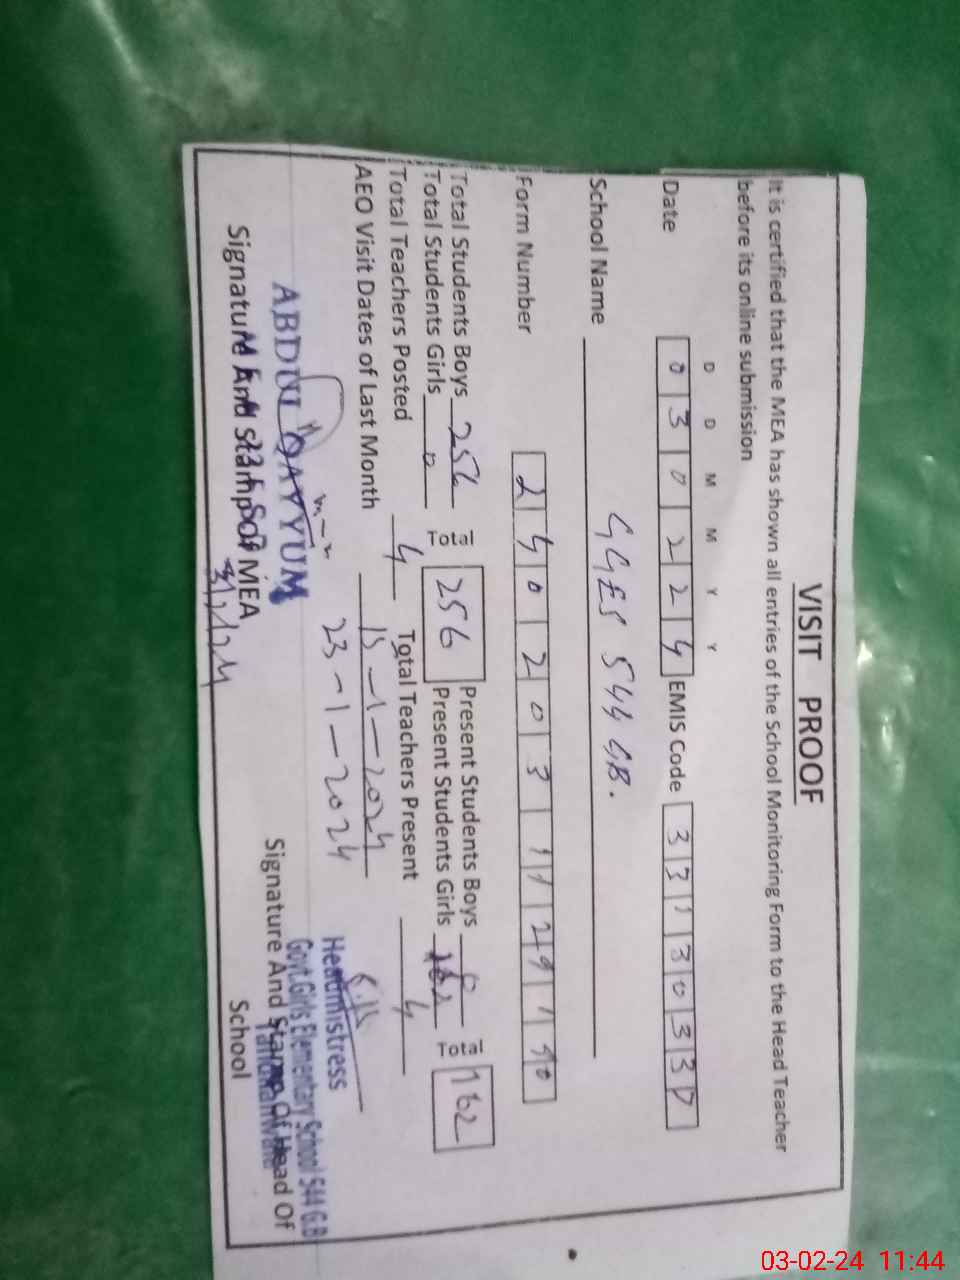 VISIT PROOF
It is certified that the MEA has shown all entries of the School Monitoring Form to the Head Teacher
before its online submission
D D M M Y Y
Date 0 3 0 2 2 4 EMIS Code 3 3 1 1 3 0 3 3 0
School Name GGES 544 GB.
Form Number 2 4 0 2 0 3 1 1 2 9 1
Total Students Boys 256 Total 256 Present Students Boys 0 Total 162
Total Students Girls 0 Present Students Girls
Total Teachers Posted 4 Total Teachers Present 4
AEO Visit Dates of Last Month 15-1-2024
23-1-2024
ABDUL QAYYUM
Signature And Stamp Of MEA
Headmistress
Govt.Girls Elementary School 544 G.B
Signature And Stamp Of Head Of
School
03-02-24 11:44